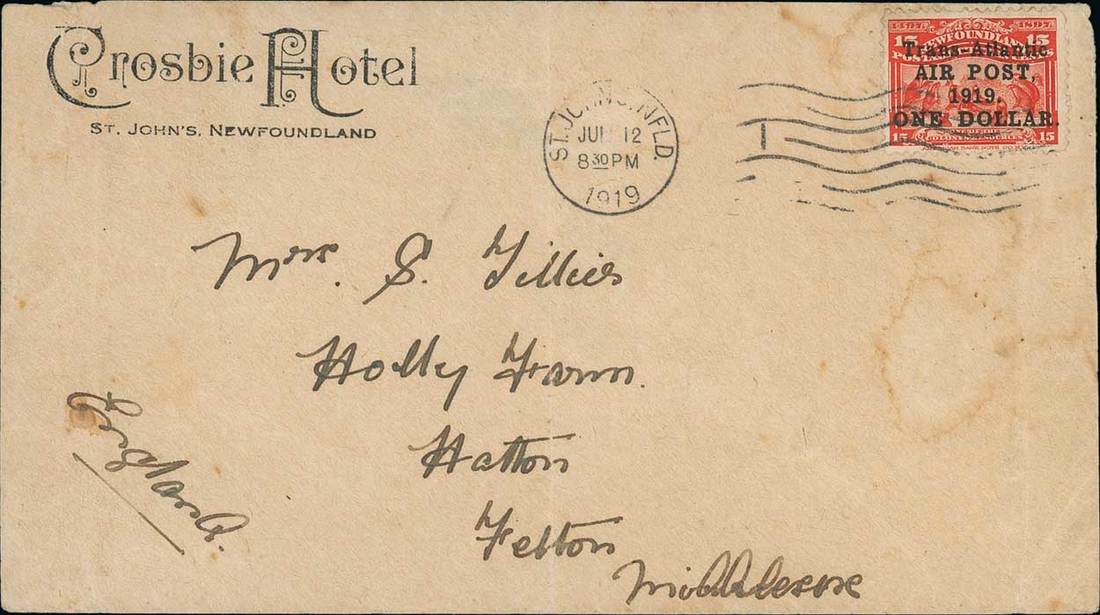 Crosbie Hotel
ST. JOHN'S, NEWFOUNDLAND
ST. JOHN'S, NFLD.
JUL 12
8 30 PM
1919
1497 1897
15 NEWFOUNDLAND 15
Trans-Atlantic
AIR POST,
1919.
ONE DOLLAR.
15 ONE OF THE 15
COLONY'S RESOURCES
Mrs. S. Tillies
Holly Farm.
Hatton
Felton
Middlesex